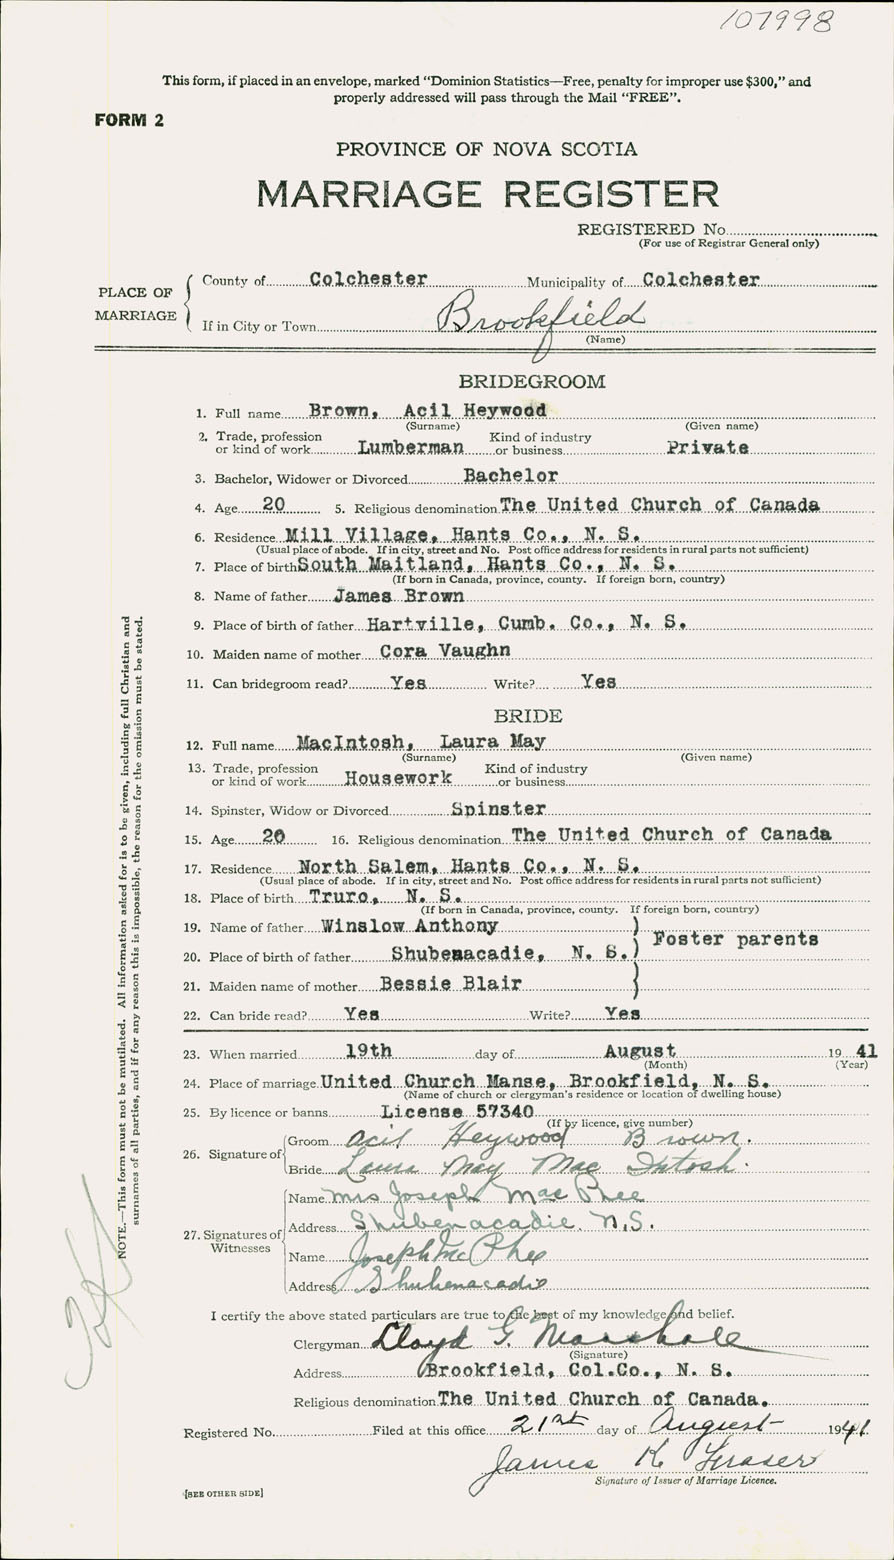 107998
This form, if placed in an envelope, marked "Dominion Statistics—Free, penalty for improper use $300," and
properly addressed will pass through the Mail "FREE".
FORM 2
PROVINCE OF NOVA SCOTIA
MARRIAGE REGISTER
REGISTERED No.
(For use of Registrar General only)
PLACE OF MARRIAGE
County of Colchester Municipality of Colchester
If in City or Town Brookfield
(Name)
BRIDEGROOM
1. Full name Brown, Acil Heywood
(Surname) (Given name)
2. Trade, profession or kind of work Lumberman Kind of industry or business Private
3. Bachelor, Widower or Divorced Bachelor
4. Age 20 5. Religious denomination The United Church of Canada
6. Residence Mill Village, Hants Co., N. S.
(Usual place of abode. If in city, street and No. Post office address for residents in rural parts not sufficient)
7. Place of birth South Maitland, Hants Co., N. S.
(If born in Canada, province, county. If foreign born, country)
8. Name of father James Brown
9. Place of birth of father Hartville, Cumb. Co., N. S.
10. Maiden name of mother Cora Vaughn
11. Can bridegroom read? Yes Write? Yes
BRIDE
12. Full name MacIntosh, Laura May
(Surname) (Given name)
13. Trade, profession or kind of work Housework Kind of industry or business
14. Spinster, Widow or Divorced Spinster
15. Age 20 16. Religious denomination The United Church of Canada
17. Residence North Salem, Hants Co., N. S.
(Usual place of abode. If in city, street and No. Post office address for residents in rural parts not sufficient)
18. Place of birth Truro, N. S.
(If born in Canada, province, county. If foreign born, country)
19. Name of father Winslow Anthony
Foster parents
20. Place of birth of father Shubenacadie, N. S.
21. Maiden name of mother Bessie Blair
22. Can bride read? Yes Write? Yes
23. When married 19th day of August 19 41
(Month) (Year)
24. Place of marriage United Church Manse, Brookfield, N. S.
(Name of church or clergyman's residence or location of dwelling house)
25. By licence or banns License 57340
(If by licence, give number)
26. Signature of
Groom Acil Heywood Brown.
Bride Laura May Mac Intosh.
27. Signatures of Witnesses
Name Mrs Joseph MacPhee
Address Shubenacadie. N.S.
Name Joseph McPhee
Address Shubenacadie
I certify the above stated particulars are true to the best of my knowledge and belief.
Clergyman Lloyd G. Marshall
(Signature)
Address Brookfield, Col.Co., N. S.
Religious denomination The United Church of Canada.
Registered No. Filed at this office 21st day of August 1941.
James K Fraser
Signature of Issuer of Marriage Licence.
[SEE OTHER SIDE]
NOTE.—This form must not be mutilated. All information asked for is to be given, including full Christian and
surnames of all parties, and if for any reason this is impossible, the reason for the omission must be stated.